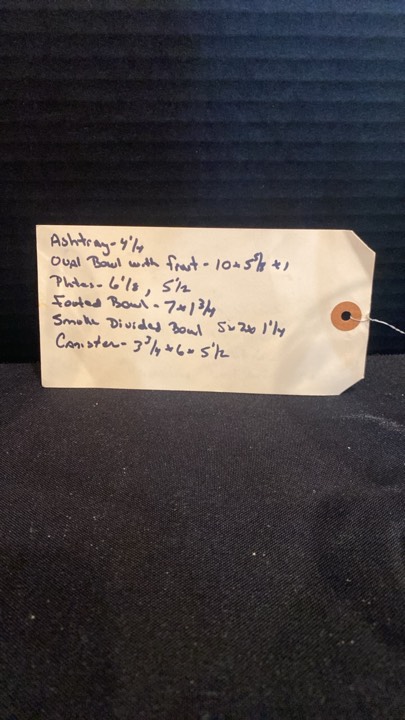 Ashtray - 4 1/4
Oval Bowl with fruit - 10 x 5 3/8 x 1
Plates - 6 1/8, 5 1/2
Footed Bowl - 7 x 1 3/4
Smoke Divided Bowl 5 x 2 x 1 1/4
Canister - 3 3/4 x 6 x 5 1/2